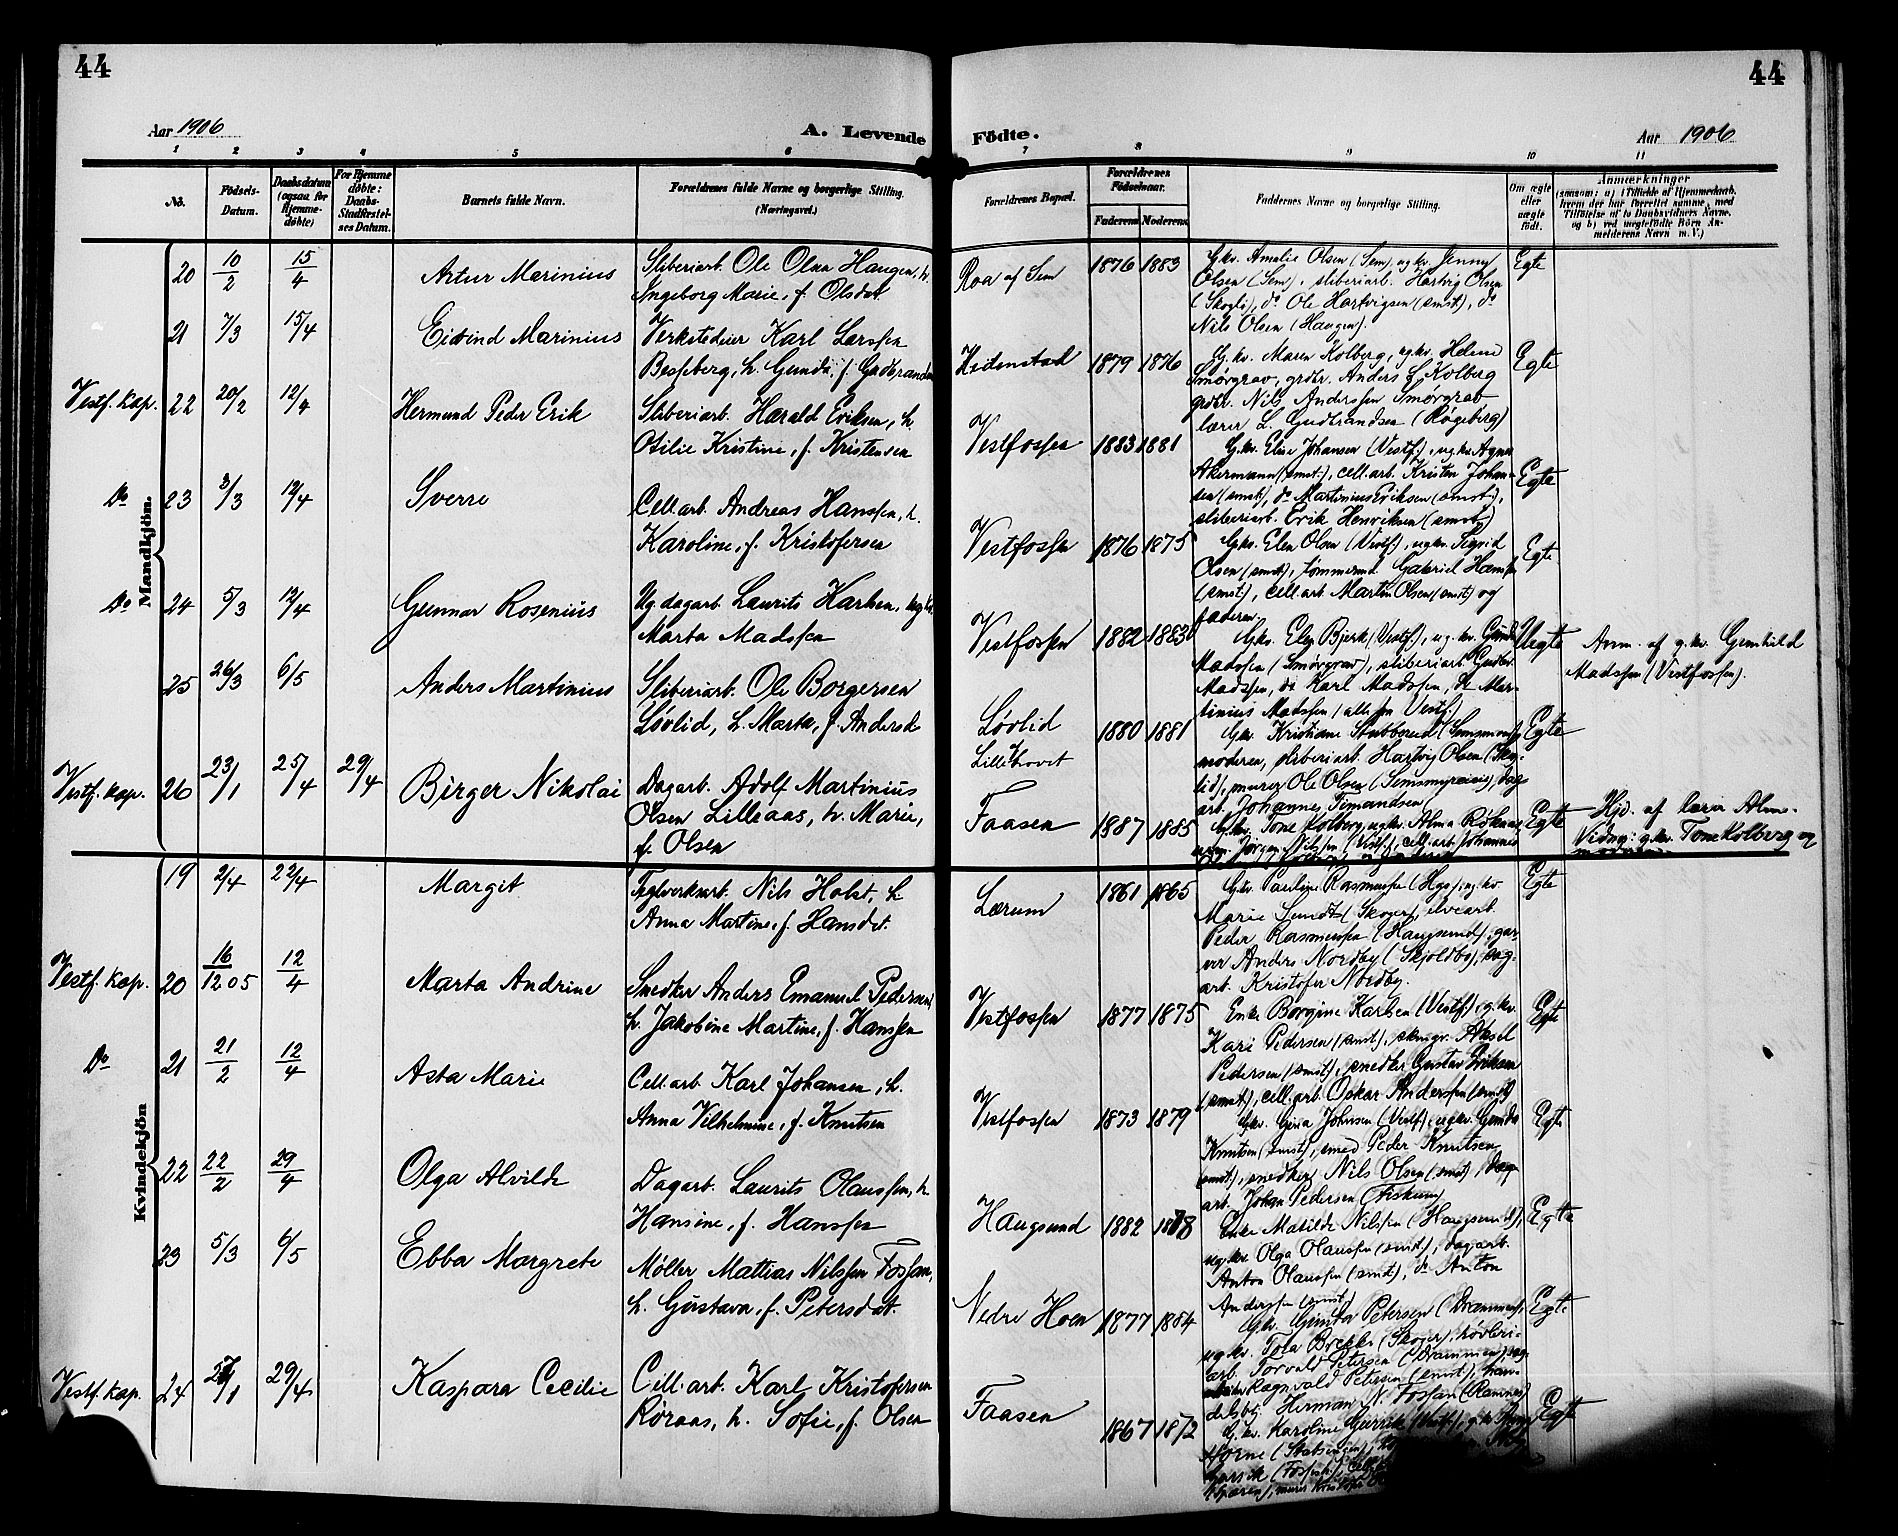 44
44
Aar 1906
A. Levende Födte.
Aar 1906
1 2 3 4 5 6 7 8 9 10 11
No.
Födsels-Datum.
Daabsdatum (ogsaa for Hjemme-döbte)
For Hjemme döbte: Daabs-Stadfæstelses Datum.
Barnets fulde Navn.
Forældrenes fulde Navne og borgerlige Stilling.
(Næringsvei.)
Forældrenes Bopæl.
Forældrenes Födselsaar.
Faderens
Moderens
Faddernes Navne og borgerlige Stilling.
Om ægte eller uægte födt.
Anmærkninger
(saasom: a) i Tilfælde af Hjemmedaab, hvem der har forrettet samme, med Tilföielse af to Daabsvidners Navne, og b) ved uægtefödte Börn Anmelderens Navn m. V.)
Mandkjön.
20 10/2 15/4 Artur Marinius
Sliberiarb. Ole Olsen Haugen, h.
Ingeborg Marie, f. Olsdat.
Roa af Sem 1876 1883
Gkv. Amalie Olsen (Sem), ugkv. Jenny
Olsen (Sem), sliberiarb. Hartvig Olsen
(Skogli), do Ole Hartvigsen (smst), do
Nils Olsen (Haugen).
Egte
21 7/3 15/4 Eivind Marinius
Verkstedeier Karl Larssen
Besseberg, h. Gunda, f. Gudbrandsen
Hedenstad 1879 1876
G.kv. Maren Kolberg, ugkv. Helene
Smørgrav, grdbr. Anders L. Kolberg
grdbr. Nils Anderssen Smørgrav
lærer L. Gudbrandsen (Røgeberg)
Egte
Vestf. kap. 22 20/2 12/4 Hermund Peder Erik
Sliberiarb. Harald Eriksen, h.
Otilie Kristine, f. Kristensen
Vestfossen 1883 1881
G.kv. Elise Johansen (Vestf), ugkv. Agnes
Akermann (smst), cell.arb. Kristen Johan-
sen (smst), do Martinius Eriksen (smst),
sliberiarb. Erik Henriksen (smst)
Egte
Do 23 3/3 12/4 Sverre
Cell.arb. Andreas Hanssen, h.
Karoline, f. Kristofersen
Vestfossen 1876 1875
Gkv. Elen Olsen (Vestf), ugkv. Sigrid
Olsen (smst), tømmermd. Gabriel Hanssen
(smst), cell.arb. Martin Olsen (smst) og
faderen.
Egte
Do 24 5/3 12/4 Gunnar Rosenius
Ug. dagarb. Laurits Karlsen, ugkv.
Marta Madssen
Vestfossen 1882 1883
Gkv. Elen Bjerk (Vestf), ug.kv. Gunda
Madssen (Smørgrav), sliberiarb. Gudbr.
Madssen, do Karl Madssen, do Mar-
tinius Madssen (alle fra Vestf.)
Uegte
Anm. af g.kv. Gunhild
Madssen (Vestfossen).
25 26/3 6/5 Anders Martinius
Sliberiarb. Ole Borgersen
Løvlid, h. Marta, f. Andersd.
Løvlid
Lillehovet 1880 1881
Gkv. Kristiane Stubberud (Semsmyr),
moderen, sliberiarb. Hartvig Olsen (Skog-
lid), murer Ole Olsen (Semsmyren), dag-
arb. Johannes Simandsen
Egte
Vestf. kap. 26 23/1 25/4 29/4 Birger Nikolai
Dagarb. Adolf Martinius
Olsen Lilleaas, h. Marie,
f. Olsen
Faasen 1887 1885
Gkv. Tone Kolberg, ugkv. Alma Røknes,
Jørgen Nilssen (Vestf), cell.arb. Johannes
Egte
Hjd. af lærer Alm.
Vidner: g.kv. Tone Kolberg og
moderen
Kvindekjön
19 2/4 22/4 Margit
Teglverksarb. Nils Holst, h.
Anna Martine, f. Hansdat.
Lærum 1861 1865
Gkv. Pauline Rasmussen (Hgs), ugkv.
Marie Sundt (Skoger), elvearb.
Peder Rasmussen (Haugsund), gar-
ver Anders Nordby (Skjoldby), dag-
arb. Kristofer Nordby.
Egte
Vestf. kap. 20 16/12 05 12/4 Marta Andrine
Snedker Anders Emanuel Pedersen,
h. Jakobine Martine, f. Hanssen
Vestfossen 1877 1875
Enke Borgine Karlsen (Vestf), g.kv.
Kari Pedersen (smst), skmgr. Aksel
Pedersen (smst), snedker Gustav Eriksen
(smst), cell.arb. Oskar Anderssen (smst)
Egte
Do 21 21/2 12/4 Asta Marie
Cell.arb. Karl Johansen, h.
Anna Vilhelmine, f. Knutsen
Vestfossen 1873 1879
Gkv. Gina Johnsen (Vestf), ugkv. Gunda
Knutsen (smst), smed Peder Knutsen
(smst), snedker Nils Olsen (smst), dag-
arb. Johan Pedersen (Fiskum)
Egte
22 22/2 29/4 Olga Alvilde
Dagarb. Laurits Olaussen, h.
Hansine, f. Hanssen
Haugsund 1882 1878
Enke Matilde Nilssen (Haugsund),
ugkv. Olga Olaussen (smst), dagarb.
Anton Olaussen (smst), do Anton
Anderssen (smst)
Egte
23 5/3 6/5 Ebba Margrete
Møller Mattias Nilssen Fossan,
h. Gustava, f. Petersdat.
Nedre Hoen 1877 1884
G.kv. Gunda Petersen (Drammen),
ugkv. Tora Brekke (Skoger), høvleri-
arb. Torvald Petersen (Drammen), dag
Ragnvald Petersen (smst), han-
delsbtj. Herman N. Fossan (Ramnes)
Egte
Vestf. kap. 24 27/1 29/4 Kaspara Cecilie
Cell.arb. Karl Kristofersen
Røraas, h. Sofie, f. Olsen
Faasen 1867 1872
G.kv. Karoline (Vestf), g.kv.
Horne
Egte